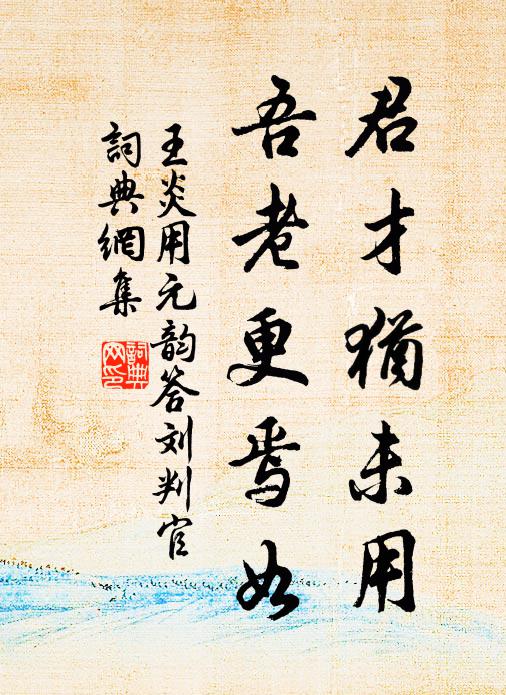 君才犹未用
吾老更焉如
王炎用元韵答刘判官
詞典網集
詞典网印